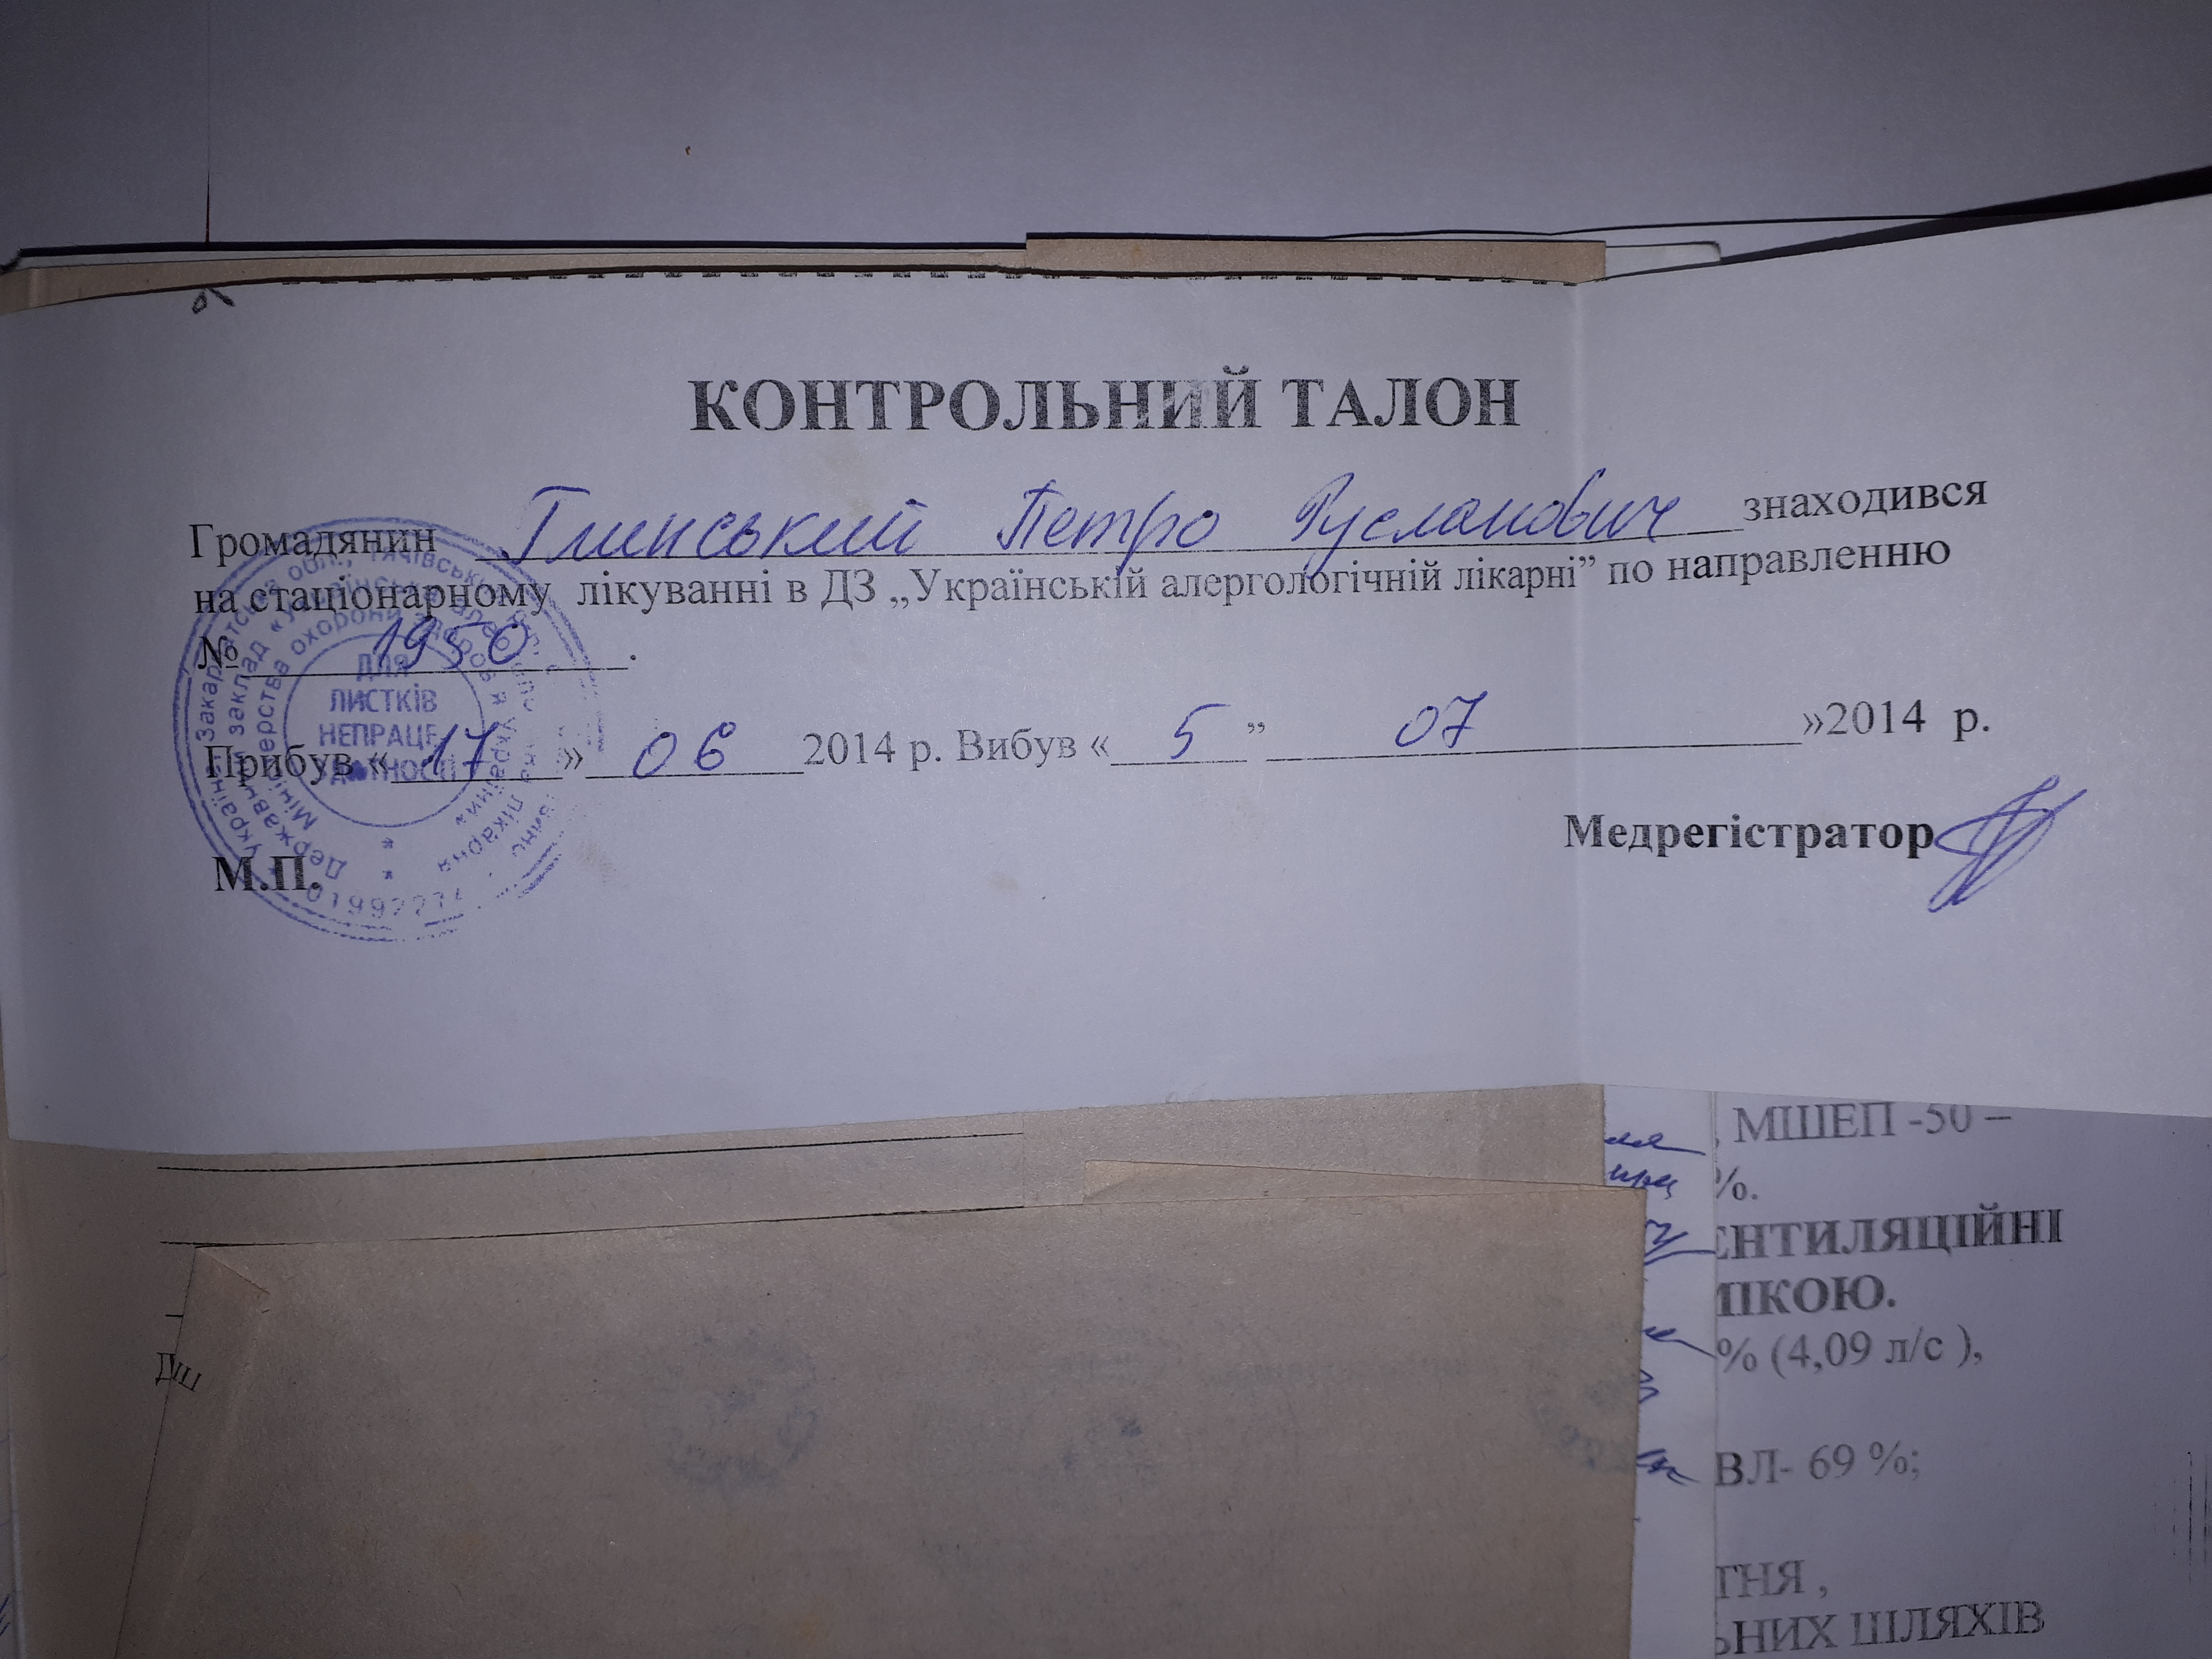 КОНТРОЛЬНИЙ ТАЛОН
Громадянин Глинський Петро Русланович знаходився
на стаціонарному лікуванні в ДЗ „Українській алергологічній лікарні” по направленню
№ 1950.
Прибув «17» 06 2014 р. Вибув «5” 07 »2014 р.
Медрегістратор
М.П.
ДЛЯ
ЛИСТКІВ
НЕПРАЦЕ-
, МШЕП -50 –
%.
ЕНТИЛЯЦІЙНІ
МІКОЮ.
% (4,09 л/с ),
ВЛ- 69 %;
ТНЯ ,
ЬНИХ ШЛЯХІВ